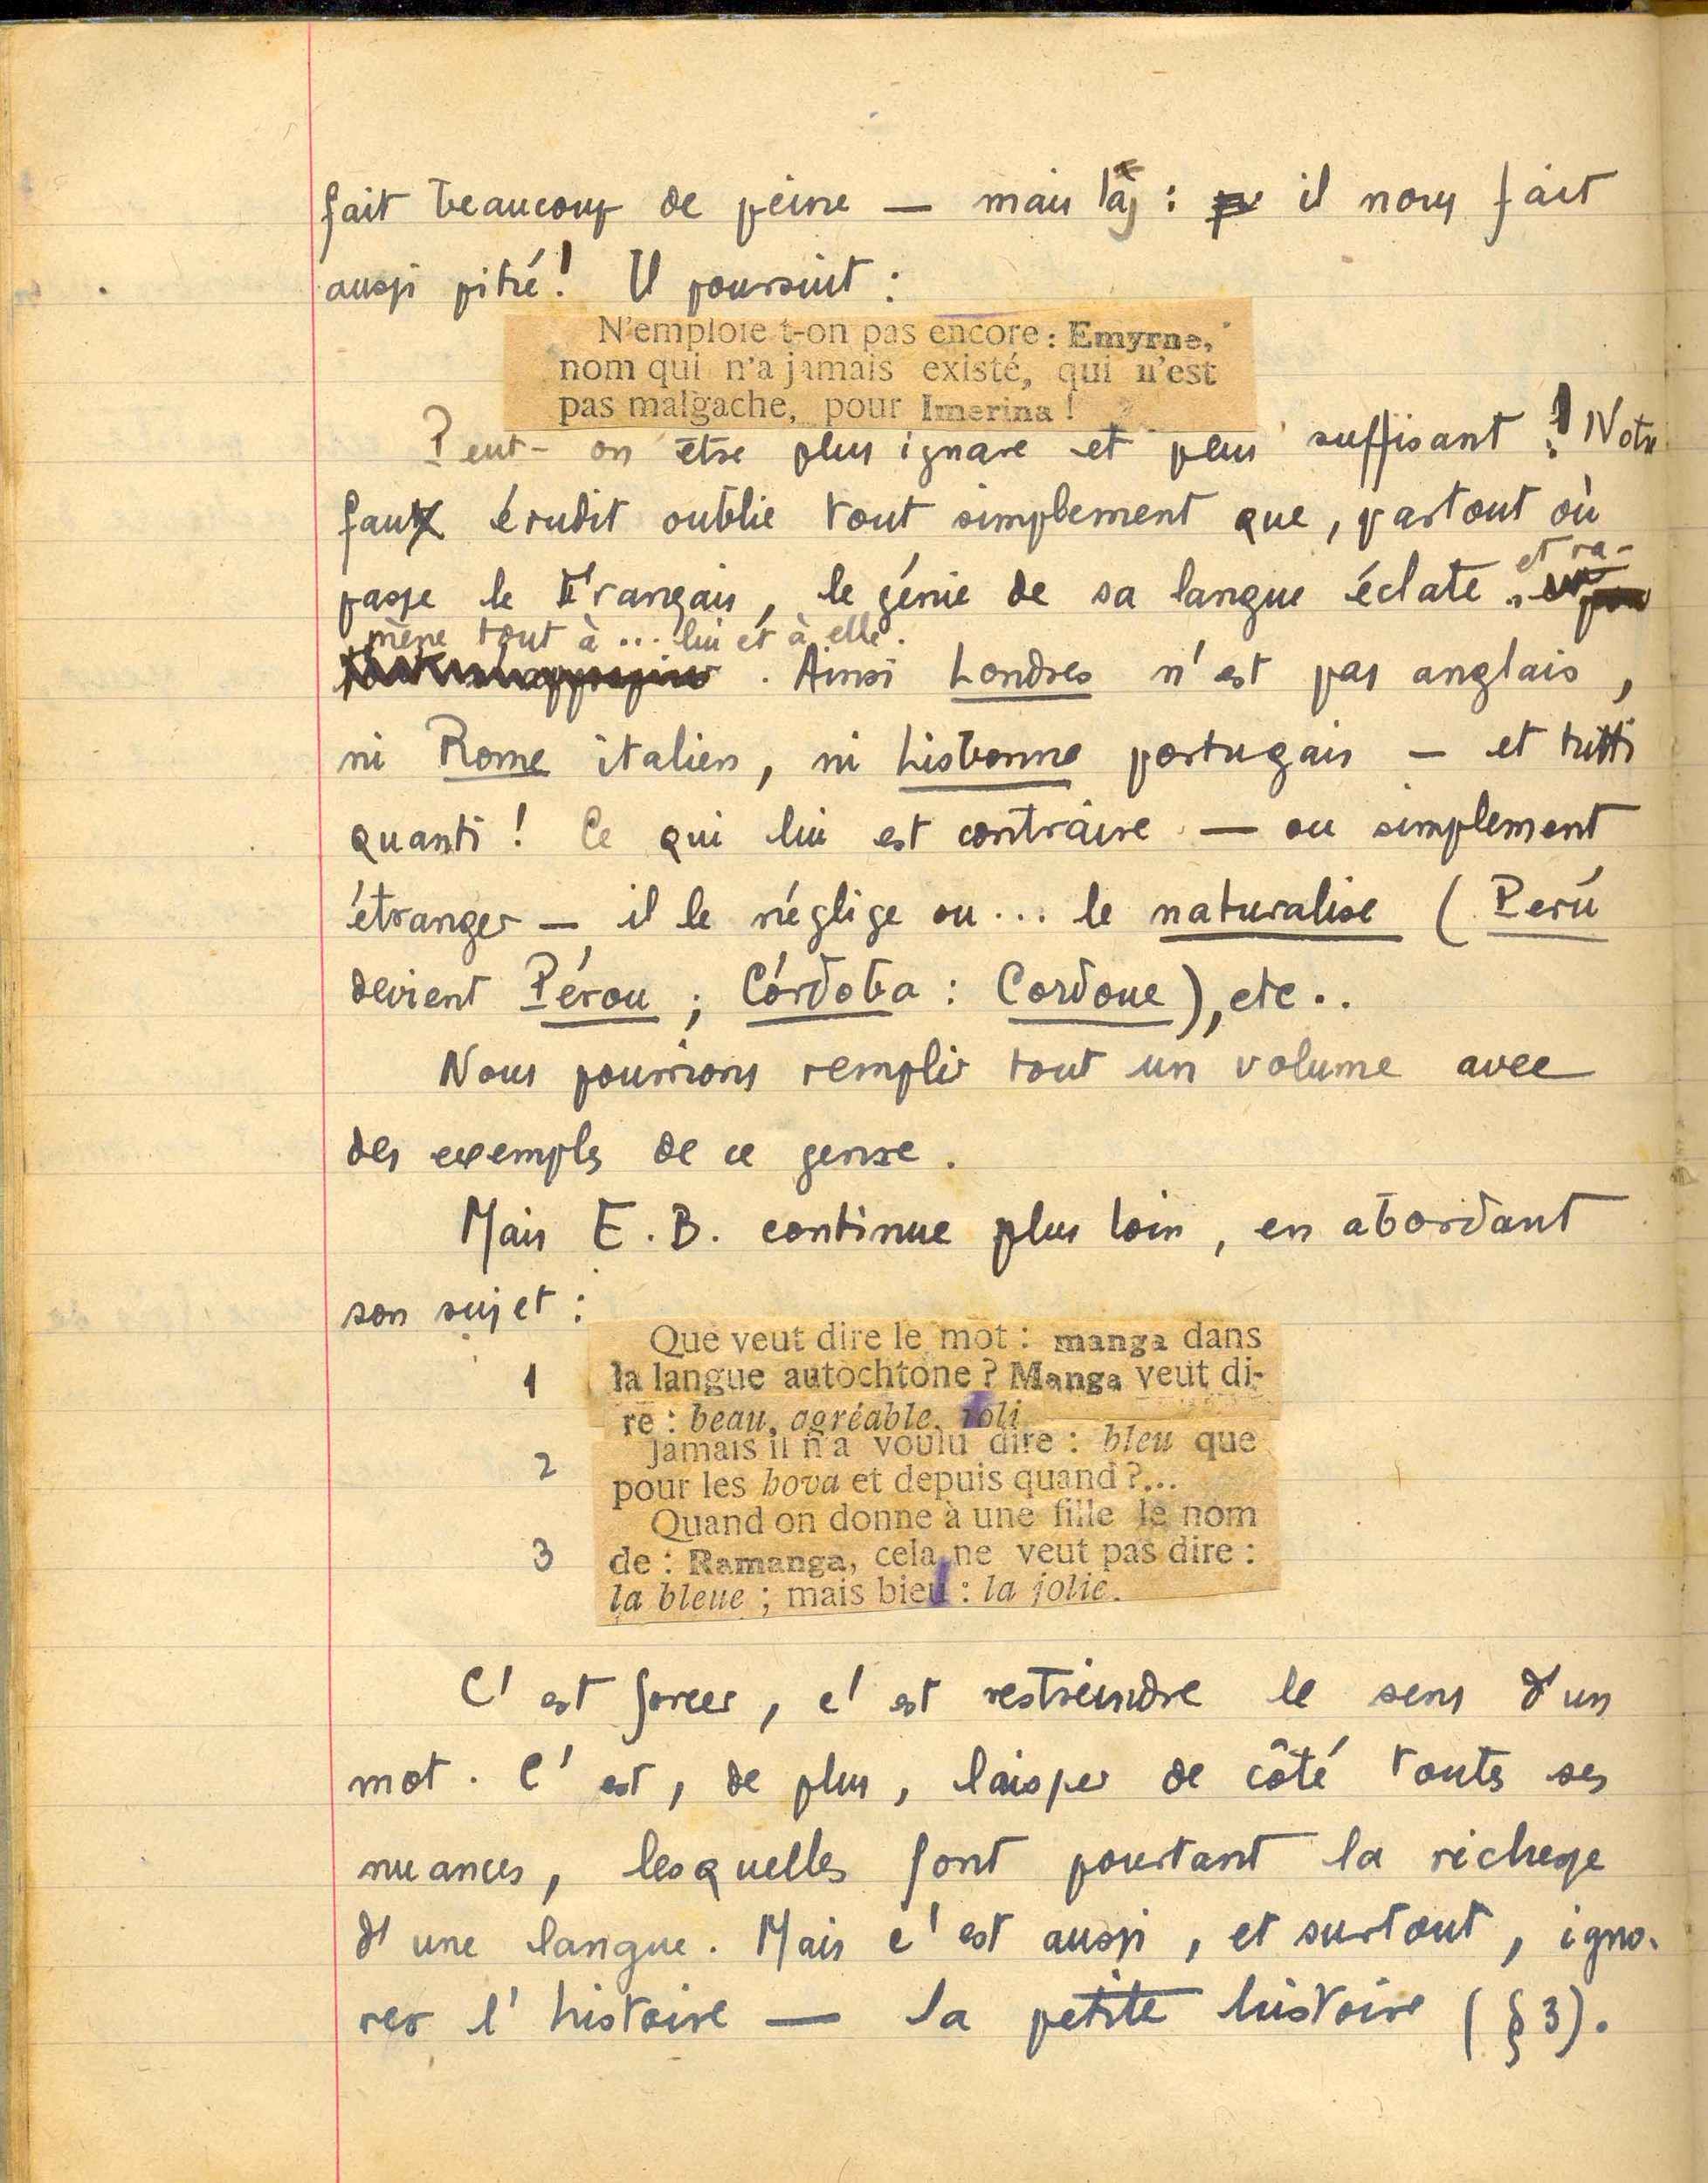 fait beaucoup de peine — mais là, : il nous fait
aussi pitié! Il poursuit :
N'emploie t-on pas encore : Emyrne,
nom qui n'a jamais existé, qui n'est
pas malgache, pour Imerina !
Peut-on être plus ignare et plus suffisant ? ! Notre
faux érudit oublie tout simplement que, partout où
passe le Français, le génie de sa langue éclate et ra-
mène tout à ... lui et à elle.
. Ainsi Londres n'est pas anglais,
ni Rome italien, ni Lisbonne portugais — et tutti
quanti ! Ce qui lui est contraire — ou simplement
étranger — il le néglige ou ... le naturalise (Perú
devient Pérou ; Córdoba : Cordoue), etc..
Nous pourrions remplir tout un volume avec
des exemples de ce genre.
Mais E. B. continue plus loin, en abordant
son sujet :
Que veut dire le mot : manga dans
1 la langue autochtone ? Manga veut di-
re : beau, agréable, joli
2 Jamais il n'a voulu dire : bleu que
pour les hova et depuis quand ?...
Quand on donne à une fille le nom
3 de : Ramanga, cela ne veut pas dire :
la bleue ; mais bien : la jolie.
C'est forcer, c'est restreindre le sens d'un
mot. C'est, de plus, laisser de côté toutes ses
nuances, lesquelles font pourtant la richesse
d'une langue. Mais c'est aussi, et surtout, igno-
rer l'histoire — la petite histoire (§ 3).